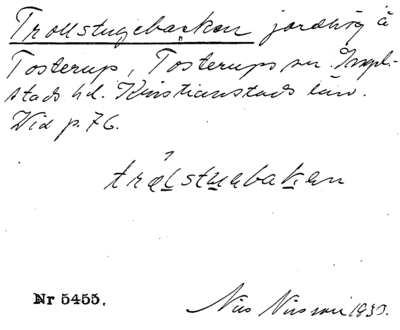 Trollstugebacken jordhög å
Tosterup, Tosterups sn. Ingel-
stads hd. Kristianstads län.
Wid p. 76.
trålstuebaken
Nr 5455.
Nils Nilsson 1933.